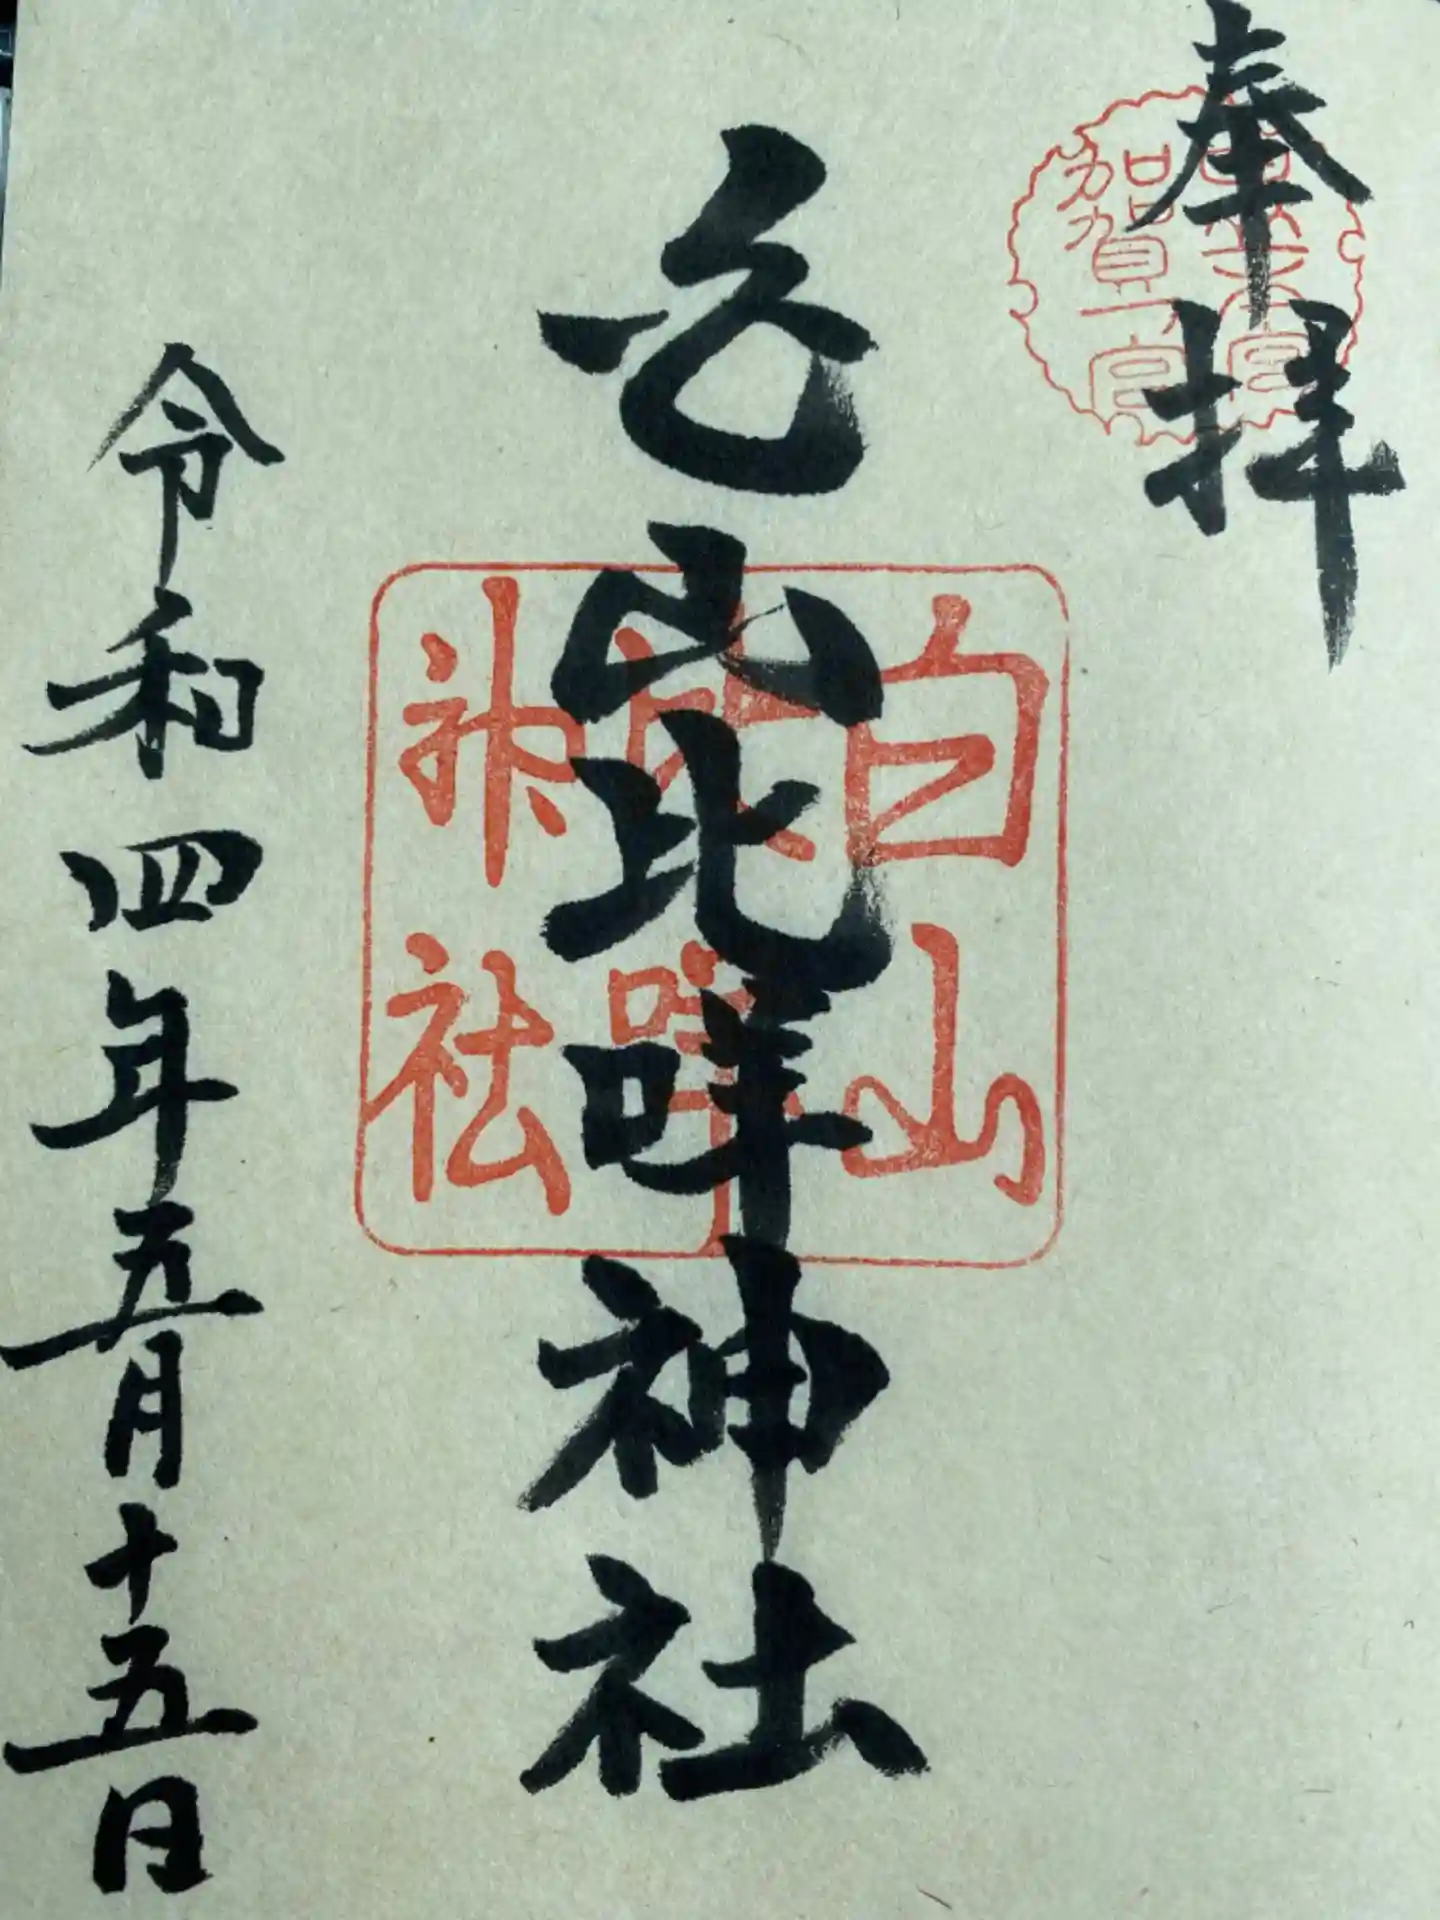 奉拝
白山比咩神社
令和四年五月十五日
白山
比咩
神社
賀一宮